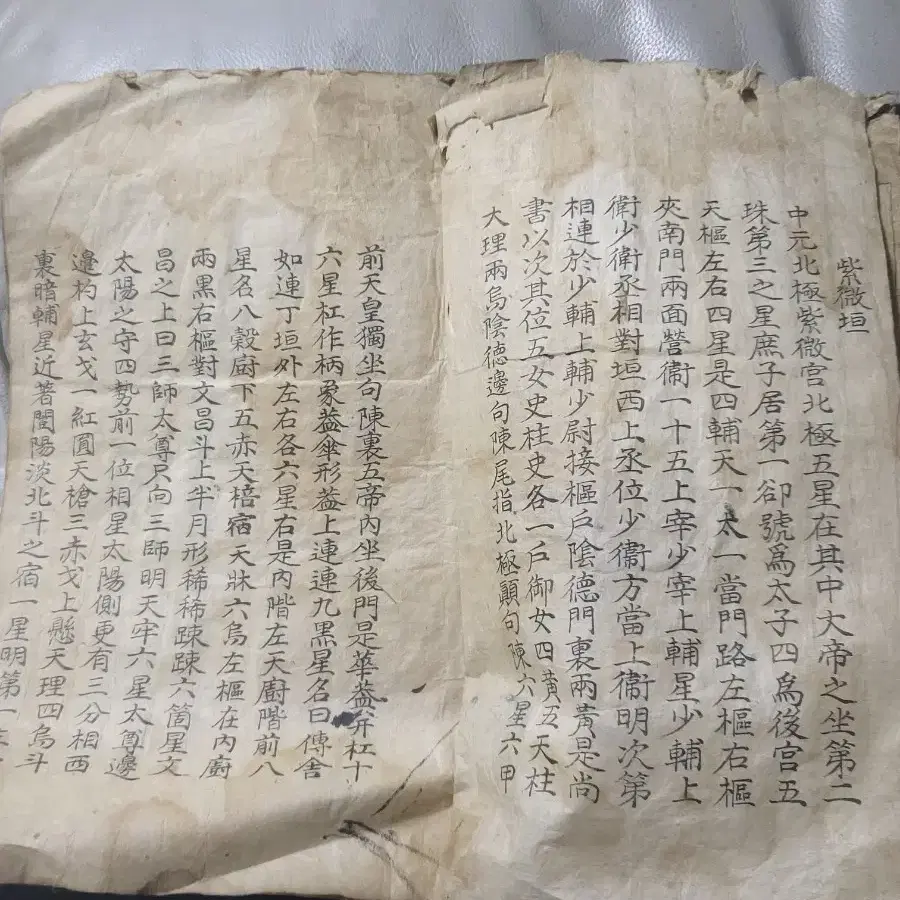 紫微垣
中元北極紫微宮北極五星在其中大帝之坐第二
珠第三之星庶子居第一卻號爲太子四爲後宮五
天樞左右四星是四輔天一太一當門路左樞右樞
夾南門兩面營衛一十五上宰少宰上輔星少輔上
衛少衛丞相對垣西上丞位少衛方當上衛明次第
相連於少輔上輔少尉接樞戶陰德門裏兩黃是尚
書以次其位五女史柱史各一戶御女四黃五天柱
大理兩烏陰德邊句陳尾指北極顛句陳六星六甲
前天皇獨坐句陳裏五帝內坐後門是華盖幷杠十
六星杠作柄象盖傘形盖上連連九黑星名曰傳舍
如連丁垣外左右各六星右是內階左天廚階前八
星名八穀廚下五赤天棓宿天牀六烏左樞在內廚
兩黑右樞對文昌斗上半月形稀稀踈踈六箇星文
昌之上曰三師太尊只向三師明天牢六星太尊邊
太陽之守四勢前一位相星太陽側更有三分相西
邊杓上玄戈一紅圓天槍三赤戈上懸天理四烏斗
裏暗輔星近著闓陽淡北斗之宿一星明第一